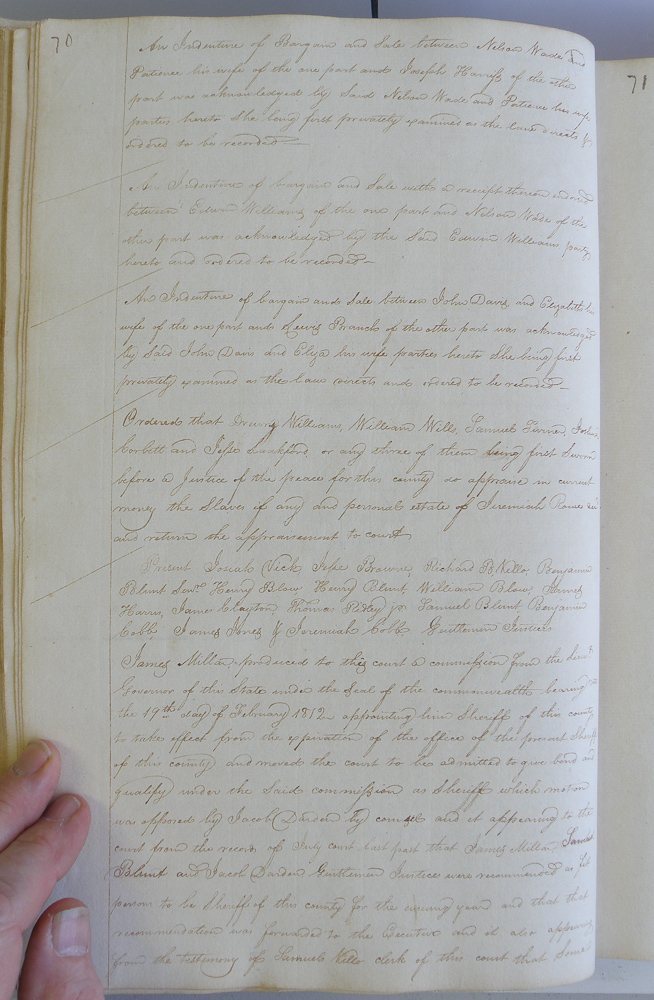 70
An Indenture of Bargain and Sale between Nelson Wade and
Patience his wife of the one part and Joseph Harriss of the other
part was acknowledged by Said Nelson Wade and Patience his wife
parties hereto She being first privately examined as the law directs &
ordered to be recorded—
An Indenture of bargain and Sale with a receipt thereon indorsed
between Edwin Williams of the one part and Nelson Wade of the
other part was acknowledged by the Said Edwin Williams party
hereto and ordered to be recorded—
An Indenture of bargain and Sale between John Davis and Elizabeth his
wife of the one part and Lewis Branch of the other part was acknowledged
by Said John Davis and Eliza his wife parties hereto She being first
privately examined as the law directs and ordered to be recorded—
Ordered that Drewry Williams, William Wills, Samuel
Corbett and Jesse Lankford or any three of them being first Sworn
before a Justice of the peace for this county do appraise in current
money the Slaves if any and personal estate of Jeremiah
and return the appraisement to court
Present Josiah Vick Jesse Browne, Richard B Kello, Benjamin
Blunt Senr. Henry Blow Henry Blunt, William Blow, James
Harris, James Clayton, Thomas Ridley jr Samuel Blunt Benjamin
Cobb James Jones & Jeremiah Cobb Gentlemen Justices
James Millar produced to this court a commission from the Lieut.
Governor of this State under the Seal of the commonwealth bearing
the 19th. day of February 1812 appointing him Sheriff of this county
to take effect from the expiration of the office of the present Sheriff
of this county and moved the court to be admitted to give bond and
qualify under the Said commission as Sheriff which motion
was opposed by Jacob Darden by counsel and it appearing to the
court from the record of July court last past that James Millar, Samuel
Blunt and Jacob Darden Gentlemen Justice were recommended as fit
persons to be Sheriff of this county for the ensuing year and that that
recommendation was forwarded to the Executive and it also appearing
from the testimony of Samuel Kello clerk of this court that Some
71